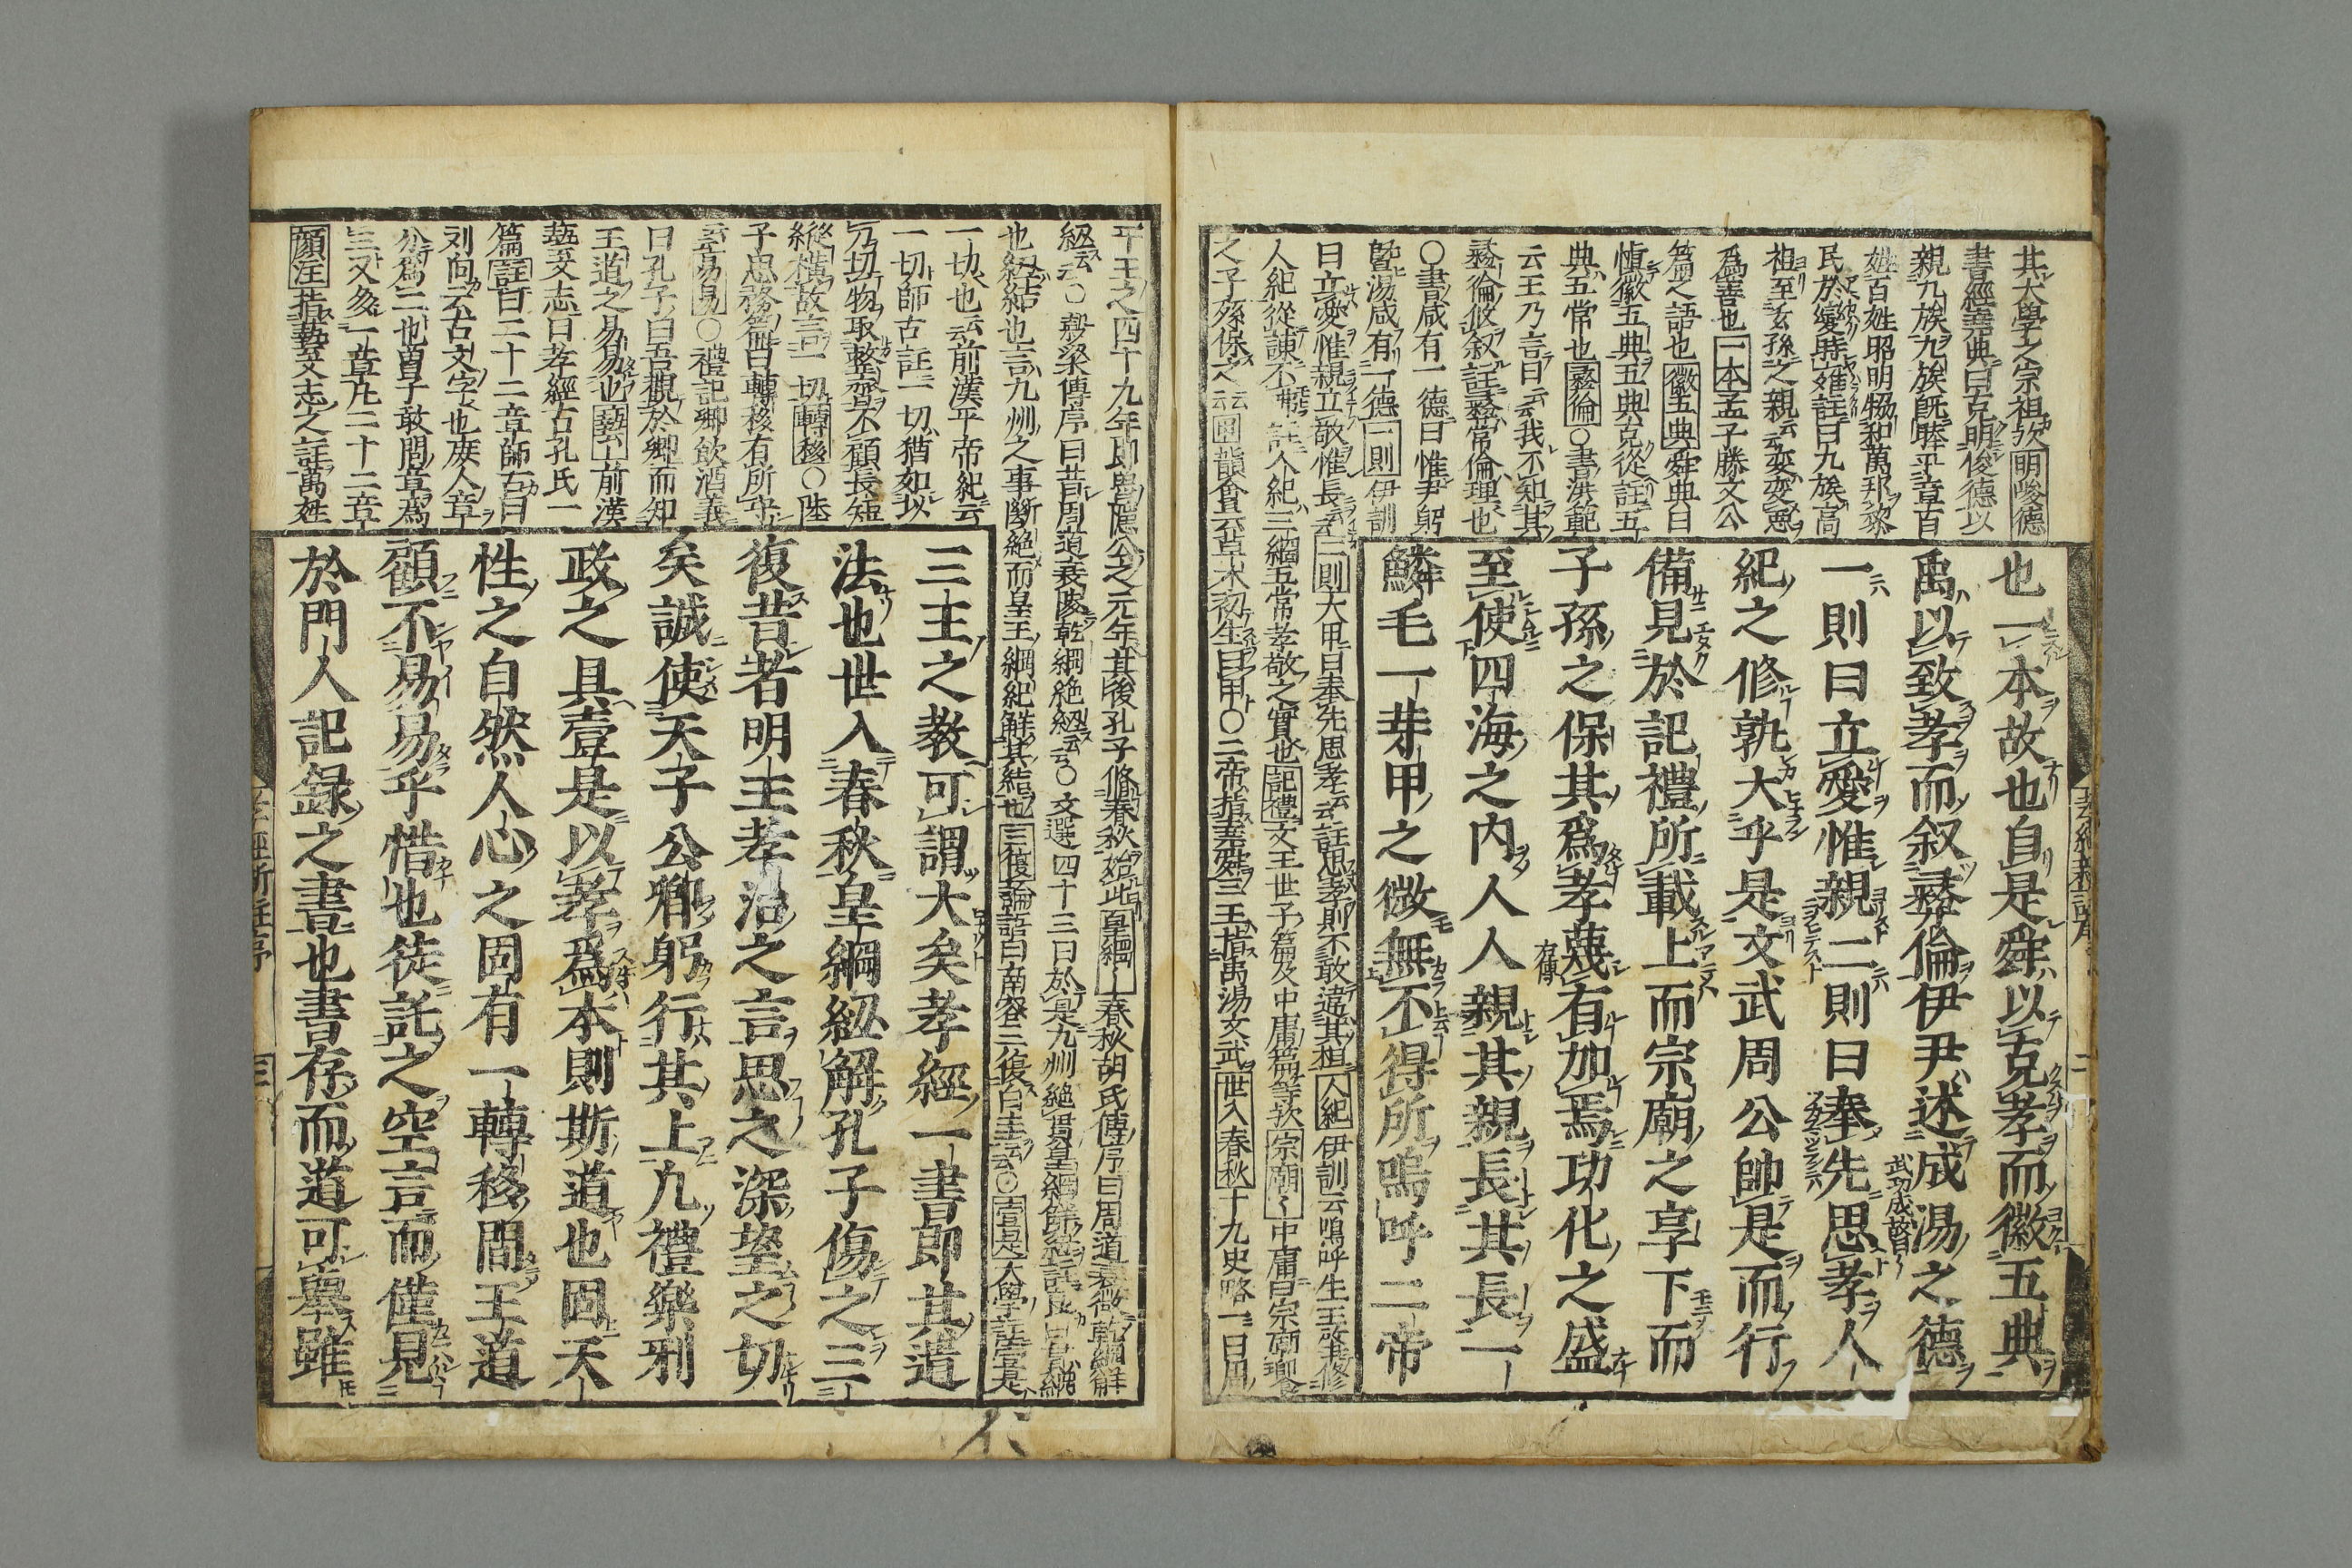 也一本故也自是舜以克孝而徽五典
禹以致孝而叙彝倫伊尹述成湯之德
一則曰立愛惟親二則曰奉先思孝人
紀之修孰大乎是文武周公帥是而行
備見於記禮所載上而宗廟之享下而
子孫之保其爲孝蔑有加焉功化之盛
至使四海之内人人親其親長其長一
鱗毛一芽甲之微無不得所嗚呼二帝
其大學之宗祖歟明峻德
書經堯典曰克明俊德以
親九族九族既睦平章百
姓百姓昭明協和萬邦黎
民於變時雍註曰九族高
祖至玄孫之親云変変悪
爲善也一本孟子滕文公
篇之語也徽五典舜典曰
愼徽五典五典克從註五
典五常也彝倫○書洪範
云王乃言曰云我不知其
彝倫攸叙註彝常倫理也
○書咸有一德曰惟尹躬
曁湯咸有一德一則伊訓
曰立愛惟親立敬惟長云二則大甲曰奉先思孝云註思孝則不敢違其祖人紀伊訓云嗚呼先王肇修
人紀從諫不咈註人紀三綱五常孝敬之實也記禮文王世子篇及中庸篇等歟宗廟〻中庸曰宗廟饗
之子孫保之云日甲○二帝指堯舜三王指禹湯文武世入春秋十九史略一曰周
孝經新註序
二
平王之四十九年即魯隱公之元年其後孔子脩春秋始此皇綱〻春秋胡氏傳序曰周道衰微乾綱解
紐云○穀梁傳序曰昔周道衰陵乾綱絶紐云○文選四十三曰於是九州絶貫皇綱解紐註
也紐結也言九州之事斷絶而皇王綱紀解其結也三復論語曰南容三復白圭云○壹是大學註壹是
一切也云前漢平帝紀云
一切師古註一切猶如以
刀切物取整齊不顧長短
縱橫故言一切轉移○陸
子忠務篇曰轉移有所守
云易易○禮記郷飲酒義
曰孔子曰吾觀於郷而知
王道之易易也藝〻前漢
藝文志曰孝經古孔氏一
篇註曰二十二章師古曰
刘向云古文字也庶人章
分爲二也曽子敢問章爲
三又多一章凡二十二章
顔注指藝文志之註萬姓
三王之教可謂大矣孝經一書即其遺
法也世入春秋皇綱紐解孔子傷之三
復昔者明王孝治之言思之深望之切
矣誠使天子公卿躬行其上凡禮樂刑
政之具壹是以孝爲本則斯道也固天
性之自然人心之固有一轉移間王道
顧不易易乎惜也徒託之空言而僅見
於門人記録之書也書存而道可舉雖
孝經新註序
三